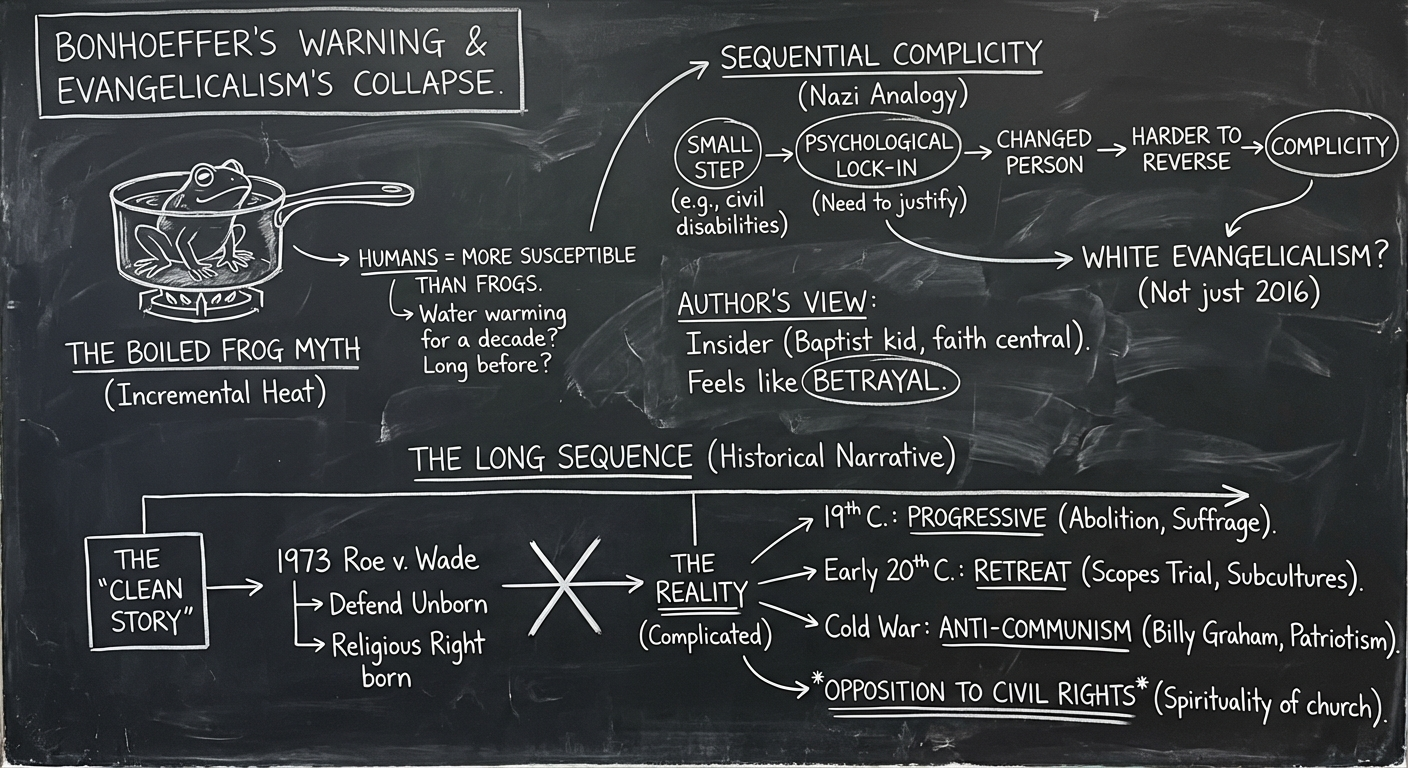 BONHOEFFER'S WARNING &
EVANGELICALISM'S COLLAPSE.
THE BOILED FROG MYTH
(Incremental Heat)
HUMANS = MORE SUSCEPTIBLE
THAN FROGS.
Water warming
for a decade?
Long before?
SEQUENTIAL COMPLICITY
(Nazi Analogy)
SMALL
STEP
(e.g., civil
disabilities)
PSYCHOLOGICAL
LOCK-IN
(Need to justify)
CHANGED
PERSON
HARDER TO
REVERSE
COMPLICITY
WHITE EVANGELICALISM?
(Not just 2016)
AUTHOR'S VIEW:
Insider (Baptist kid, faith central).
Feels like BETRAYAL.
THE LONG SEQUENCE (Historical Narrative)
THE
"CLEAN
STORY"
1973 Roe v. Wade
Defend Unborn
Religious Right
born
THE
REALITY
(Complicated)
19th C.: PROGRESSIVE (Abolition, Suffrage).
Early 20th C.: RETREAT (Scopes Trial, Subcultures).
Cold War: ANTI-COMMUNISM (Billy Graham, Patriotism).
*OPPOSITION TO CIVIL RIGHTS* (Spirituality of church).